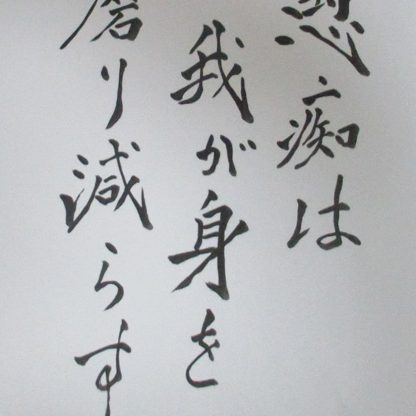 愚痴は
我が身を
磨り減らす